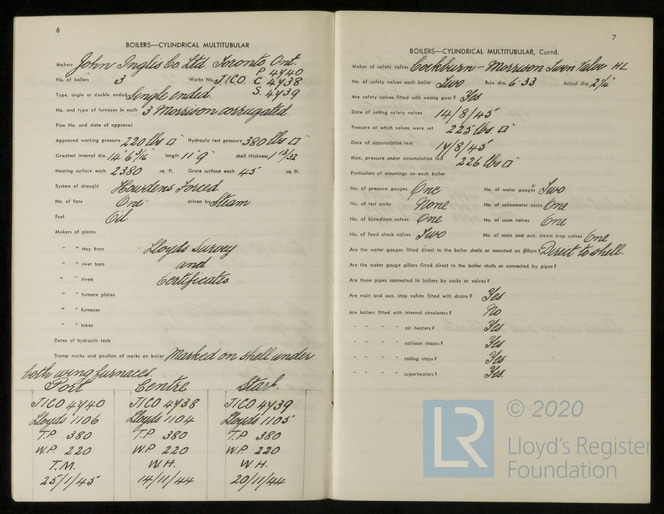 6
BOILERS—CYLINDRICAL MULTITUBULAR
Makers John Inglis Co. Ltd. Toronto Ont.
P 4440
No. of boilers 3 Works No. JICO C 4438
S. 4439
Type, single or double ended Single Ended.
No. and type of furnaces in each 3 Morrison corrugated
Plan No. and date of approval
Approved working pressure 220 lbs □" Hydraulic test pressure 380 lbs □"
Greatest internal dia. 14' 6 9/16 length 11' 9" shell thickness 1 13/32
Heating surface each 2380 sq. ft. Grate surface each 45 sq. ft.
System of draught Howdens Forced
No. of fans One driven by Steam
Fuel Oil
Makers of plates
" " stay bars Lloyds Survey
" " rivet bars and
" " rivets Certificates
" " furnace plates
" " furnaces
" " tubes
Dates of hydraulic tests
Stamp marks and position of marks on boiler Marked on shell under
both wing furnaces
Port Centre Star.
JICO 4440 JICO 4438 JICO 4439
Lloyds 1106 Lloyds 1104 Lloyds 1105
T.P 380 T.P 380 T.P 380
W.P 220 W.P 220 W.P 220
T.M. W.H. W.H.
25/1/45 14/11/44 20/11/44
7
BOILERS—CYLINDRICAL MULTITUBULAR, Contd.
Maker of safety valves Cockburn - Morrison Twin Valve HL
No. of safety valves each boiler Two Rule dia. 6.33 Actual dia. 2 1/4"
Are safety valves fitted with easing gear? Yes
Date of setting safety valves 14/8/45
Pressure at which valves were set 225 lbs □"
Date of accumulation test 14/8/45
Max. pressure under accumulation test 226 lbs □"
Particulars of mountings on each boiler
No. of pressure gauges One No. of water gauges Two
No. of test cocks None No. of salinometer cocks One
No. of blowdown valves One No. of scum valves One
No. of feed check valves Two No. of main and aux. steam stop valves One
Are the water gauges fitted direct to the boiler shells or mounted on pillars? Direct to shell.
Are the water gauge pillars fitted direct to the boiler shells or connected by pipes?
Are these pipes connected to boilers by cocks or valves?
Are main and aux. stop valves fitted with drains? Yes
Are boilers fitted with internal circulators? No
" " " " air heaters? Yes
" " " " collision chocks? Yes
" " " " rolling stays? Yes
" " " " superheaters? Yes
LR
© 2020
Lloyd's Register
Foundation